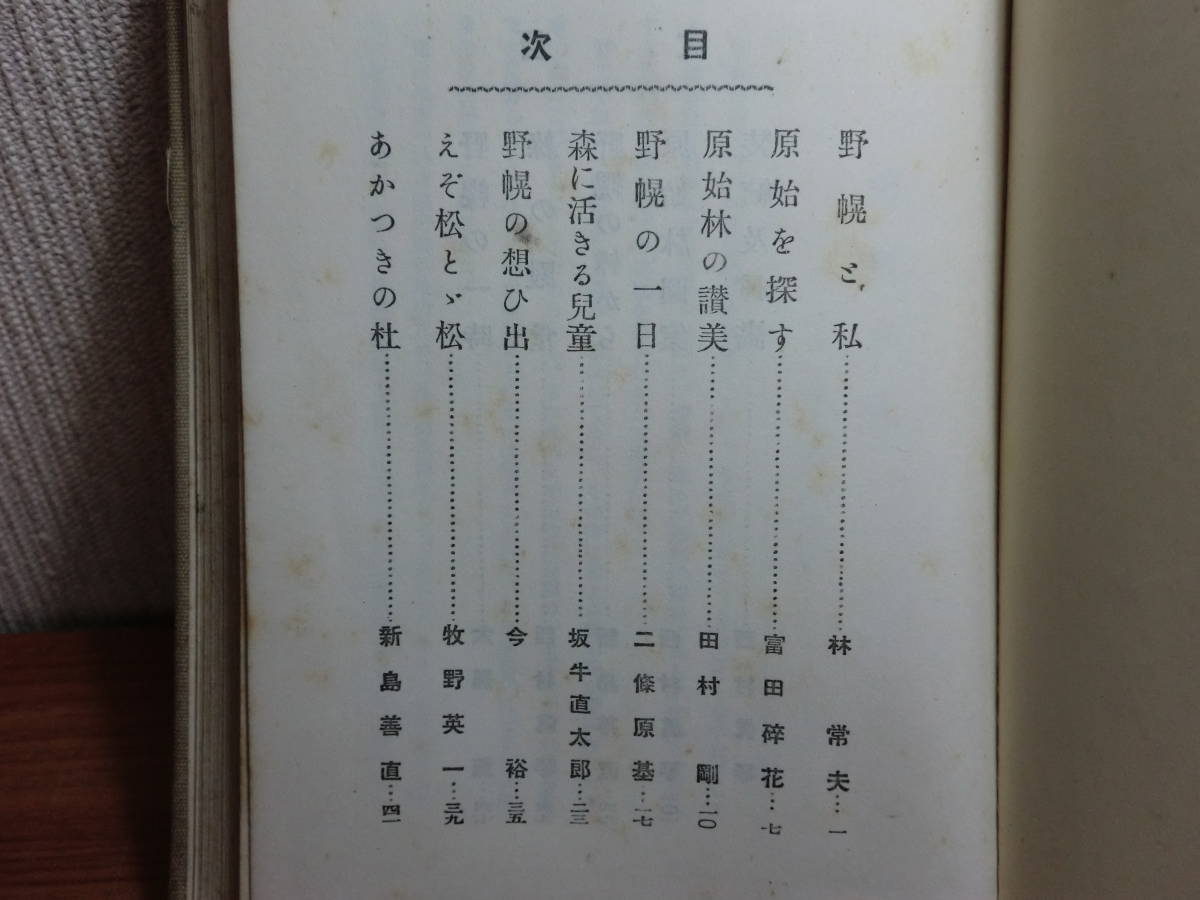 目次
野幌と私…林常夫…一
原始を探す…富田碎花…七
原始林の讃美…田村剛…一〇
野幌の一日…二條原基…一七
森に活きる兒童…坂牛直太郎…二三
野幌の想ひ出…今裕…三五
えぞ松とゞ松…牧野英一…三九
あかつきの杜…新島善直…四一